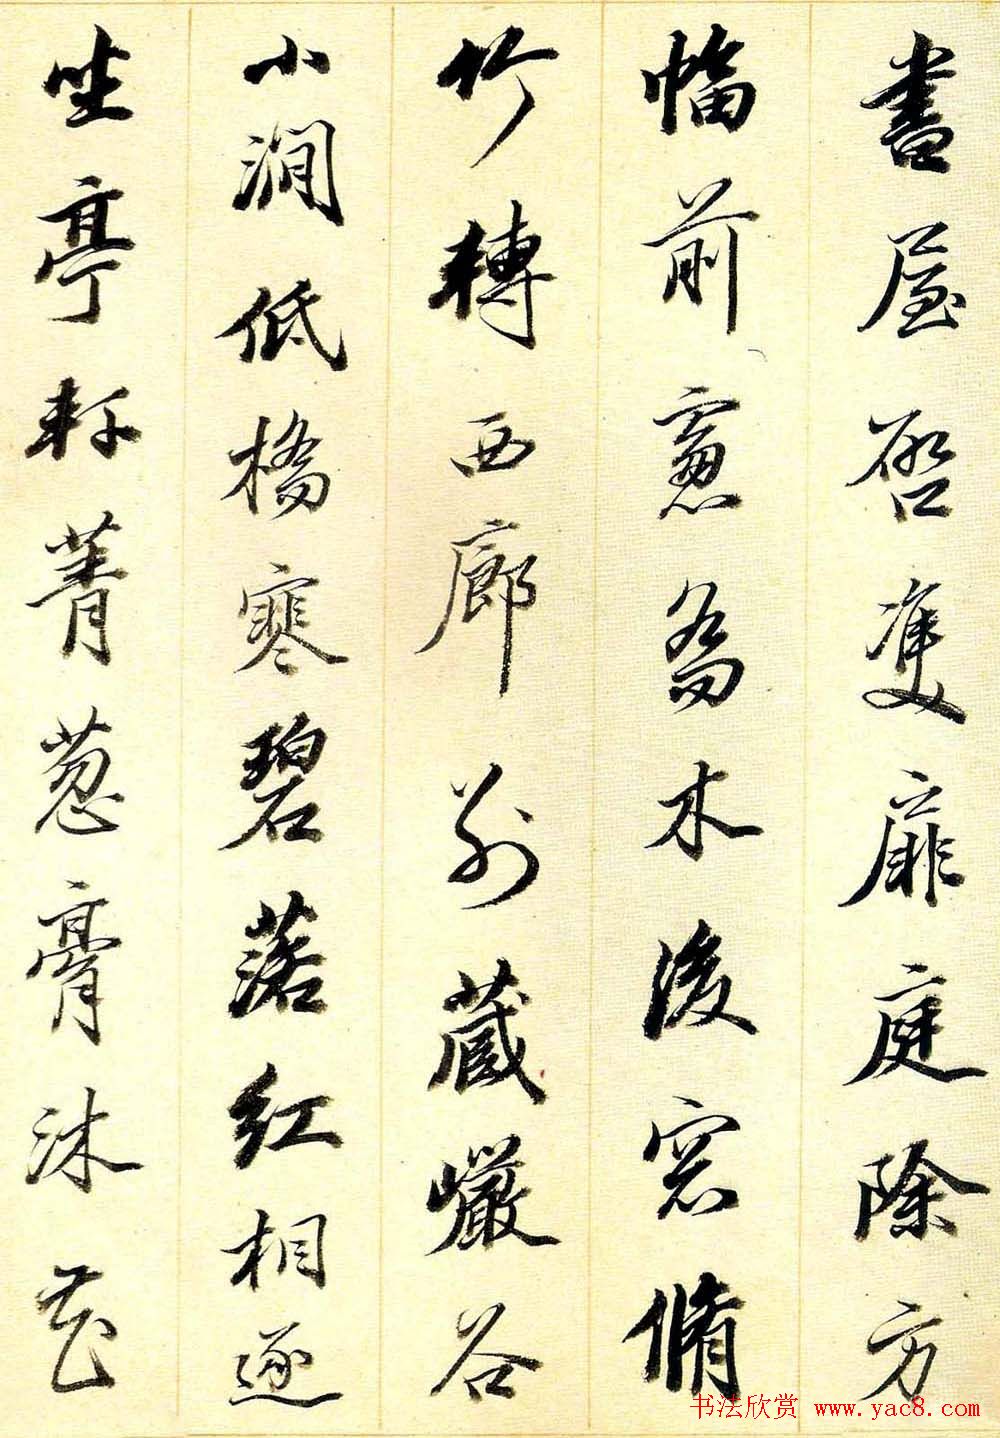 書屋啓雙扉庭除方
幅前窻喬木後窓脩
竹轉西廊別藏巘谷
小澗低橋寒碧落紅相逐
坐亭籽菁葱膏沐花
书法欣赏 www.yac8.com